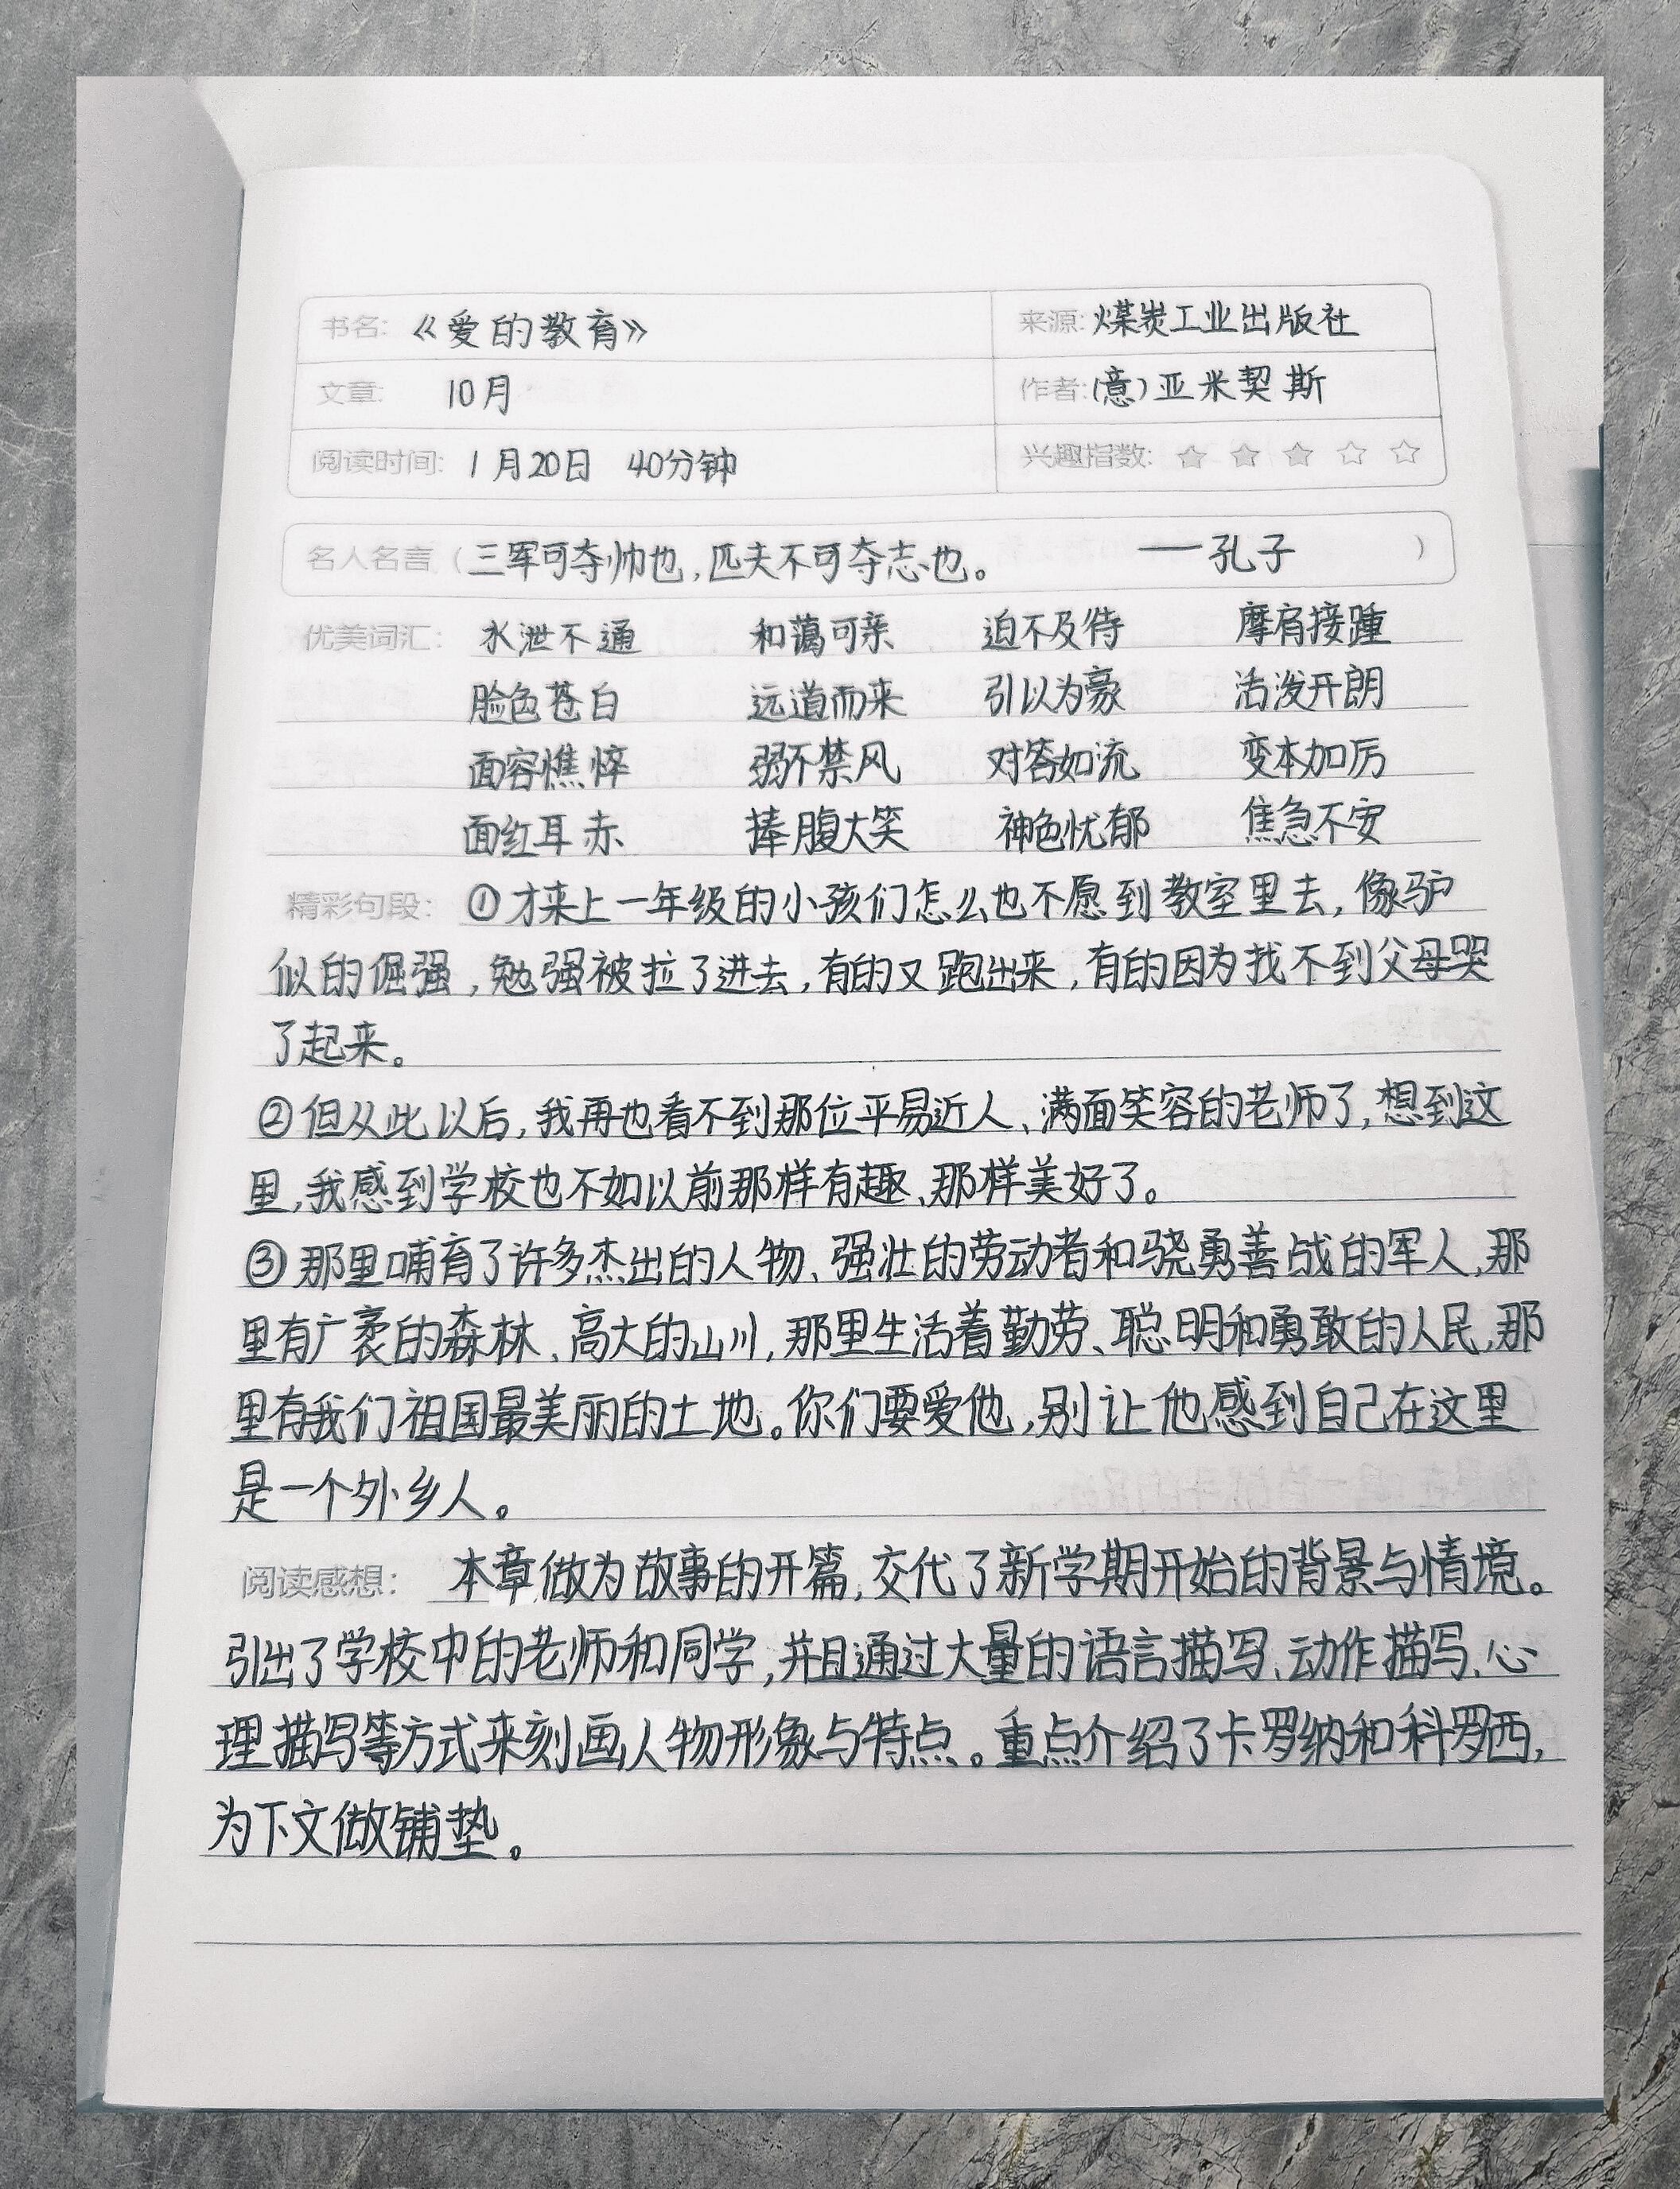 书名: 《爱的教育》 来源: 煤炭工业出版社
文章: 10月 作者: (意)亚米契斯
阅读时间: 1月20日 40分钟 兴趣指数: ★ ★ ★ ☆ ☆
名人名言(三军可夺帅也,匹夫不可夺志也。 ——孔子 )
优美词汇: 水泄不通 和蔼可亲 迫不及待 摩肩接踵
脸色苍白 远道而来 引以为豪 活泼开朗
面容憔悴 弱不禁风 对答如流 变本加厉
面红耳赤 捧腹大笑 神色忧郁 焦急不安
精彩句段: ①才来上一年级的小孩们怎么也不愿到教室里去,像驴
似的倔强,勉强被拉了进去,有的又跑出来,有的因为找不到父母哭
了起来。
②但从此以后,我再也看不到那位平易近人、满面笑容的老师了,想到这
里,我感到学校也不如以前那样有趣、那样美好了。
③那里哺育了许多杰出的人物、强壮的劳动者和骁勇善战的军人,那
里有广袤的森林、高大的山川,那里生活着勤劳、聪明和勇敢的人民,那
里有我们祖国最美丽的土地。你们要爱他,别让他感到自己在这里
是一个外乡人。
阅读感想: 本章做为故事的开篇,交代了新学期开始的背景与情境。
引出了学校中的老师和同学,并且通过大量的语言描写、动作描写、心
理描写等方式来刻画人物形象与特点。重点介绍了卡罗纳和科罗西,
为下文做铺垫。